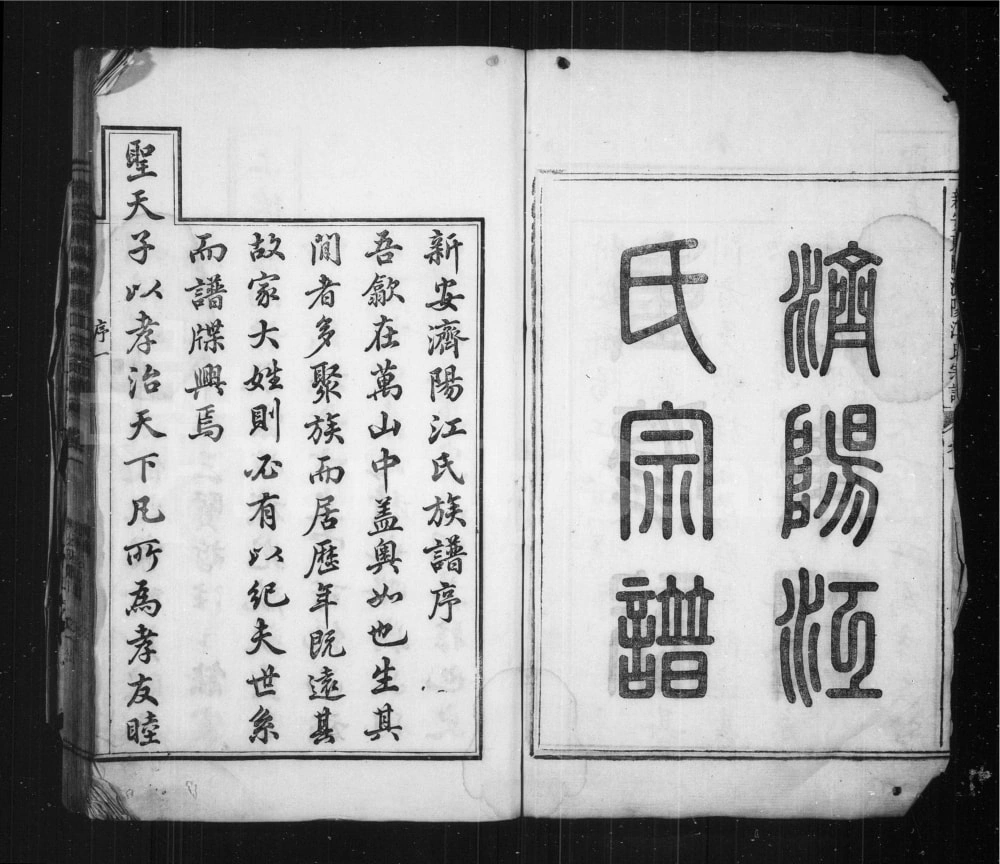 濟陽江
氏宗譜
新安濟陽江氏族譜序
吾歙在萬山中盖奧如也生其
間者多聚族而居歷年既遠其
故家大姓則必有以紀夫世系
而譜牒興焉
聖天子以孝治天下凡所為孝友睦
序一